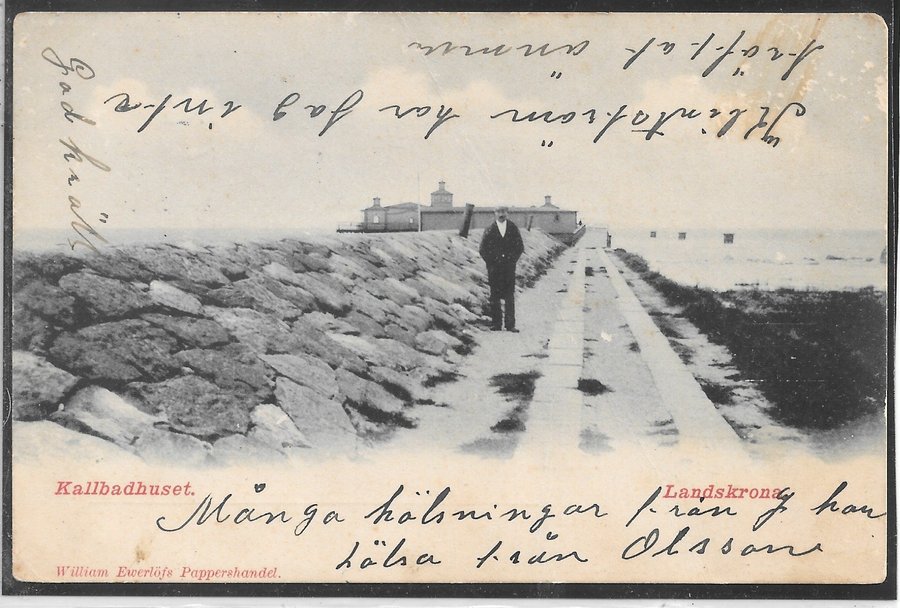 God kväll
Klintström har jag inte
träffat ännu
Kallbadhuset.
Landskrona.
Många hälsningar från
hälsa från Olsson
William Ewerlöfs Pappershandel.